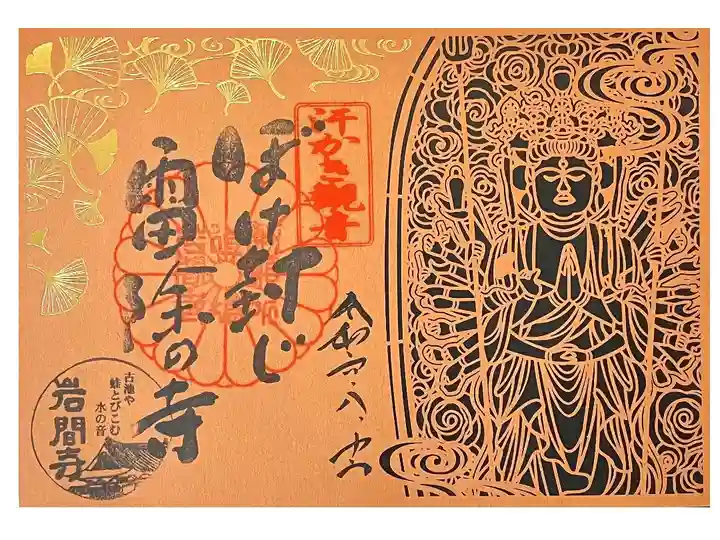 汗かき観音
ぼけ封じ
雷除の寺
古池や
蛙とびこむ
水の音
岩間寺